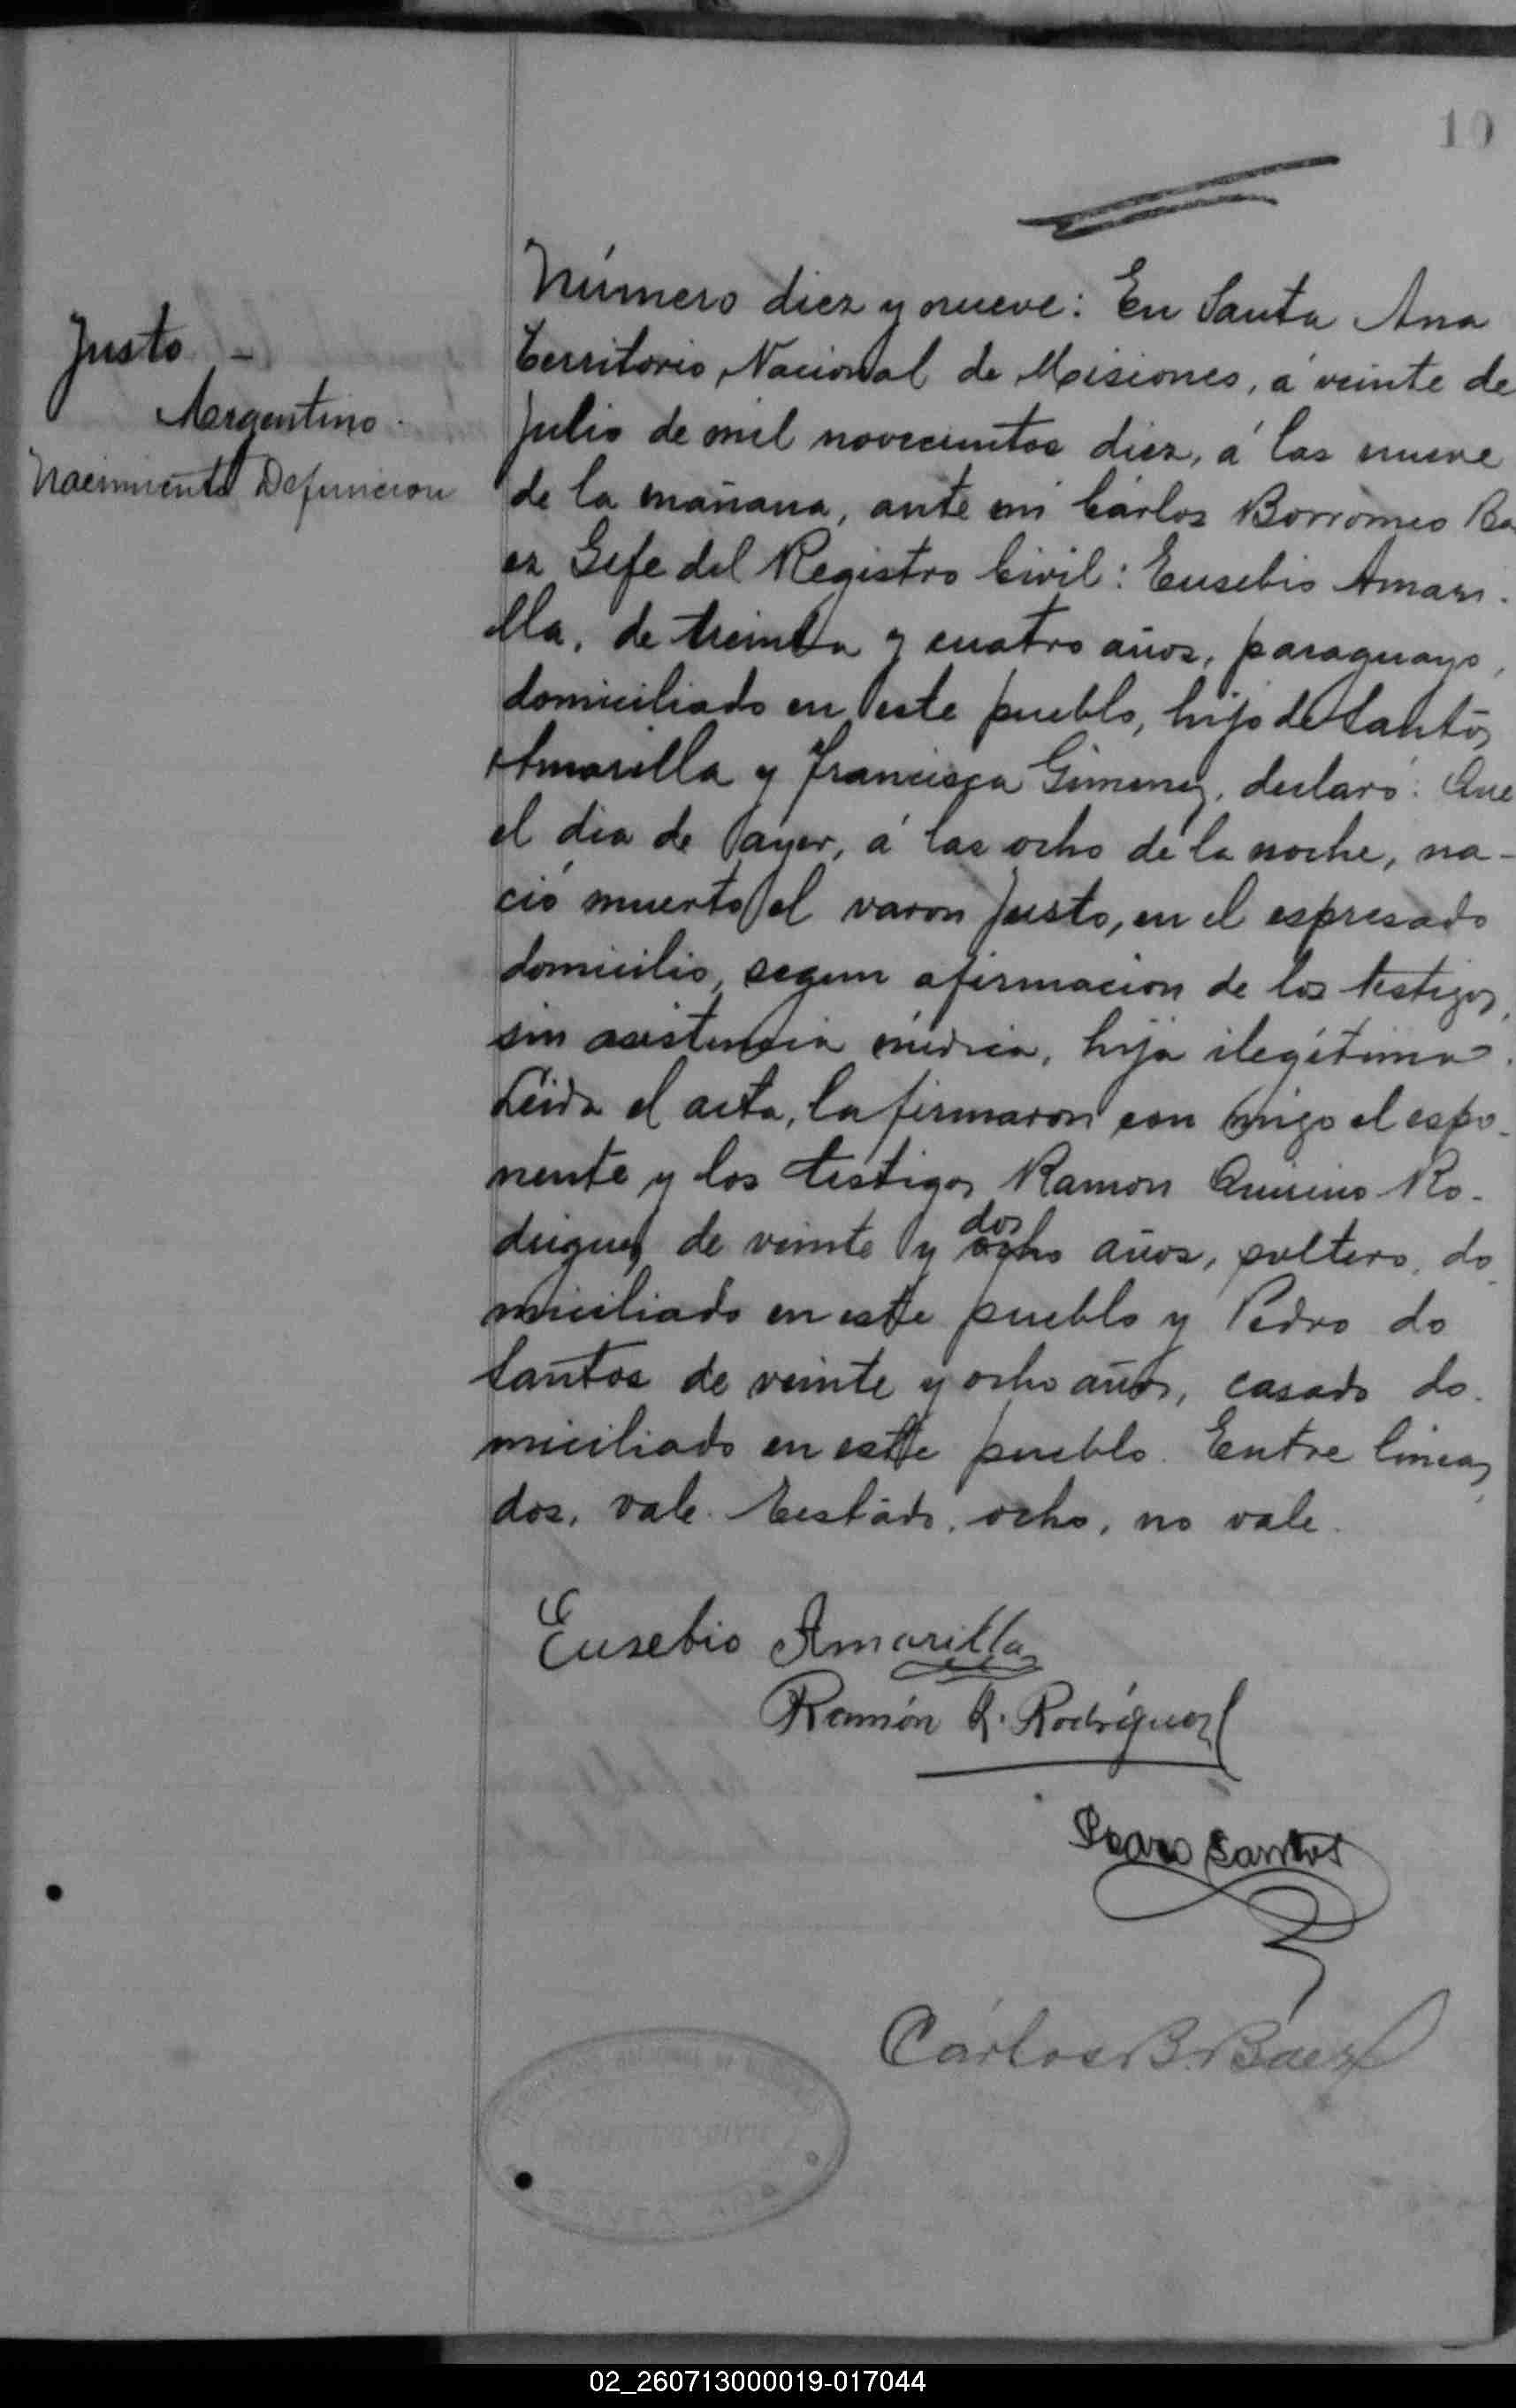 10
Justo -
Argentino
Nacimiento Defuncion
Número diez y nueve: En Santa Ana
Territorio Nacional de Misiones, á veinte de
Julio de mil novecientos diez, á las nueve
de la mañana, ante mi Cárlos Borromeo Ba
ez Gefe del Registro Civil: Eusebio Amari-
lla, de treinta y cuatro años, paraguayo,
domiciliado en este pueblo, hijo de Santos
Amarilla y Francisca Gimenez, declaró: Que
el dia de ayer, á las ocho de la noche, na-
ció muerto el varon Justo, en el espresado
domicilio, segun afirmacion de los testigos,
sin asistencia médica, hijo ilegítimo.
Leida el acta, la firmaron con migo el espo-
nente y los testigos Ramon Quirino Ro-
driguez de veinte y ocho dos años, soltero, do
miciliado en este pueblo y Pedro do
Santos de veinte y ocho años, casado do-
miciliado en este pueblo. Entre lineas,
dos, vale. Testado, ocho, no vale.
Eusebio Amarilla
Ramón Q. Rodríguez
Santos
Cárlos B. Báez
02_260713000019-017044